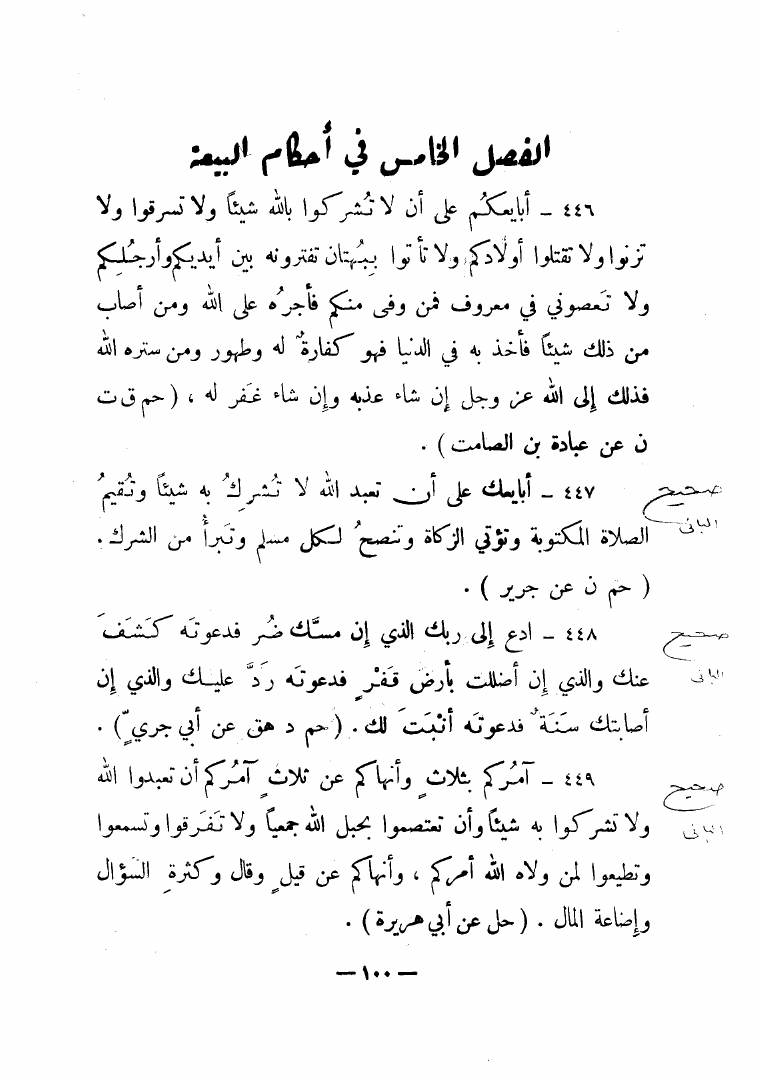 الفصل الخامس في أحكام البيعة
٤٤٦ ـ أبايعكُم على أن لا تُشركوا بالله شيئاً ولا تسرقوا ولا
تزنوا ولا تقتلوا أولادكم ولا تأتوا بِبُهتان تفترونه بين أيديكم وأرجُلِكم
ولا تَعصوني في معروف فمن وفى منكم فأجرُه على الله ومن أصاب
من ذلك شيئاً فأخذ به في الدنيا فهو كفارةٌ له وطهور ومن ستره الله
فذلك إلى الله عز وجل إن شاء عذبه وإن شاء غَفر له ، ( حم ق ت
ن عن عبادة بن الصامت ) .
٤٤٧ ـ أبايعك على أن تعبد الله لا تُشرِكُ به شيئاً وتُقيمُ
صحيح
الصلاة المكتوبة وتؤتي الزكاة وتنصحُ لكل مسلم وتَبرأُ من الشرك .
البانى
( حم ن عن جرير ) .
٤٤٨ ـ ادع إلى ربك الذي إن مسَّك ضُر فدعوتَه كَشَفَ
صحيح
عنك والذي إن أضللت بأرض قَفْرٍ فدعوتَه رَدَّ عليك والذي إن
البانى
أصابتك سَنَةٌ فدعوتَه أنْبَتَ لك . ( حم د هق عن أبي جريٍّ ) .
٤٤٩ ـ آمُركم بثلاثٍ وأنهاكم عن ثلاثٍ آمُركم أن تعبدوا الله
صحيح
ولا تشركوا به شيئاً وأن تعتصموا بحبل الله جمعياً ولا تَفَرقوا وتسمعوا
البانى
وتطيعوا لمن ولاه الله أمركم ، وأنهاكم عن قيلٍ وقال وكثرةِ السُّؤال
وإضاعة المال . ( حل عن أبي هريرة ) .
— ١٠٠ —